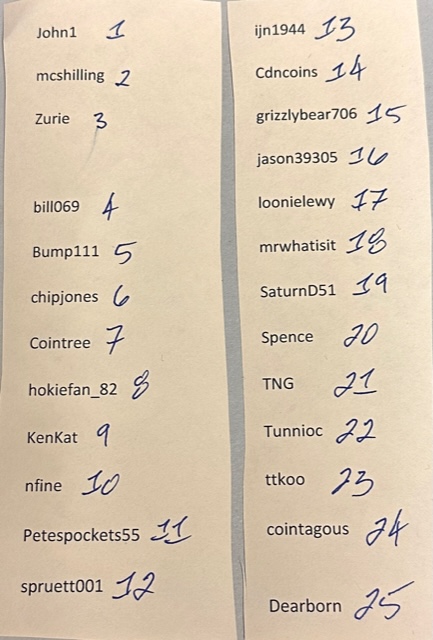 John1 1
mcshilling 2
Zurie 3
bill069 4
Bump111 5
chipjones 6
Cointree 7
hokiefan_82 8
KenKat 9
nfine 10
Petespockets55 11
spruett001 12
ijn1944 13
Cdncoins 14
grizzlybear706 15
jason39305 16
loonielewy 17
mrwhatisit 18
SaturnD51 19
Spence 20
TNG 21
Tunnioc 22
ttkoo 23
cointagous 24
Dearborn 25